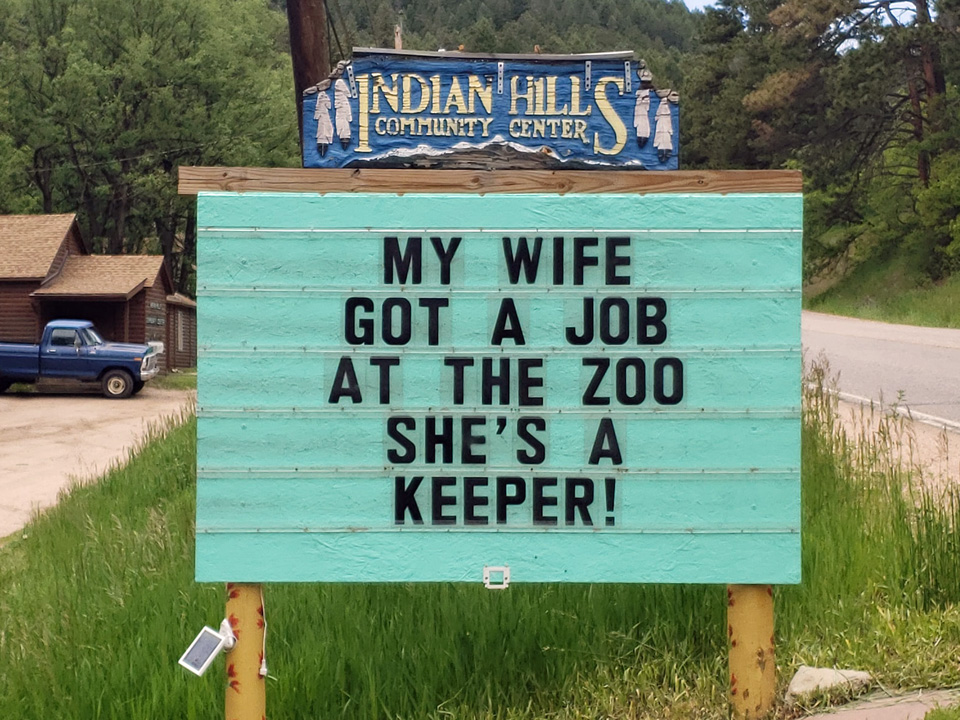 INDIAN HILLS
COMMUNITY CENTER
MY WIFE
GOT A JOB
AT THE ZOO
SHE'S A
KEEPER!